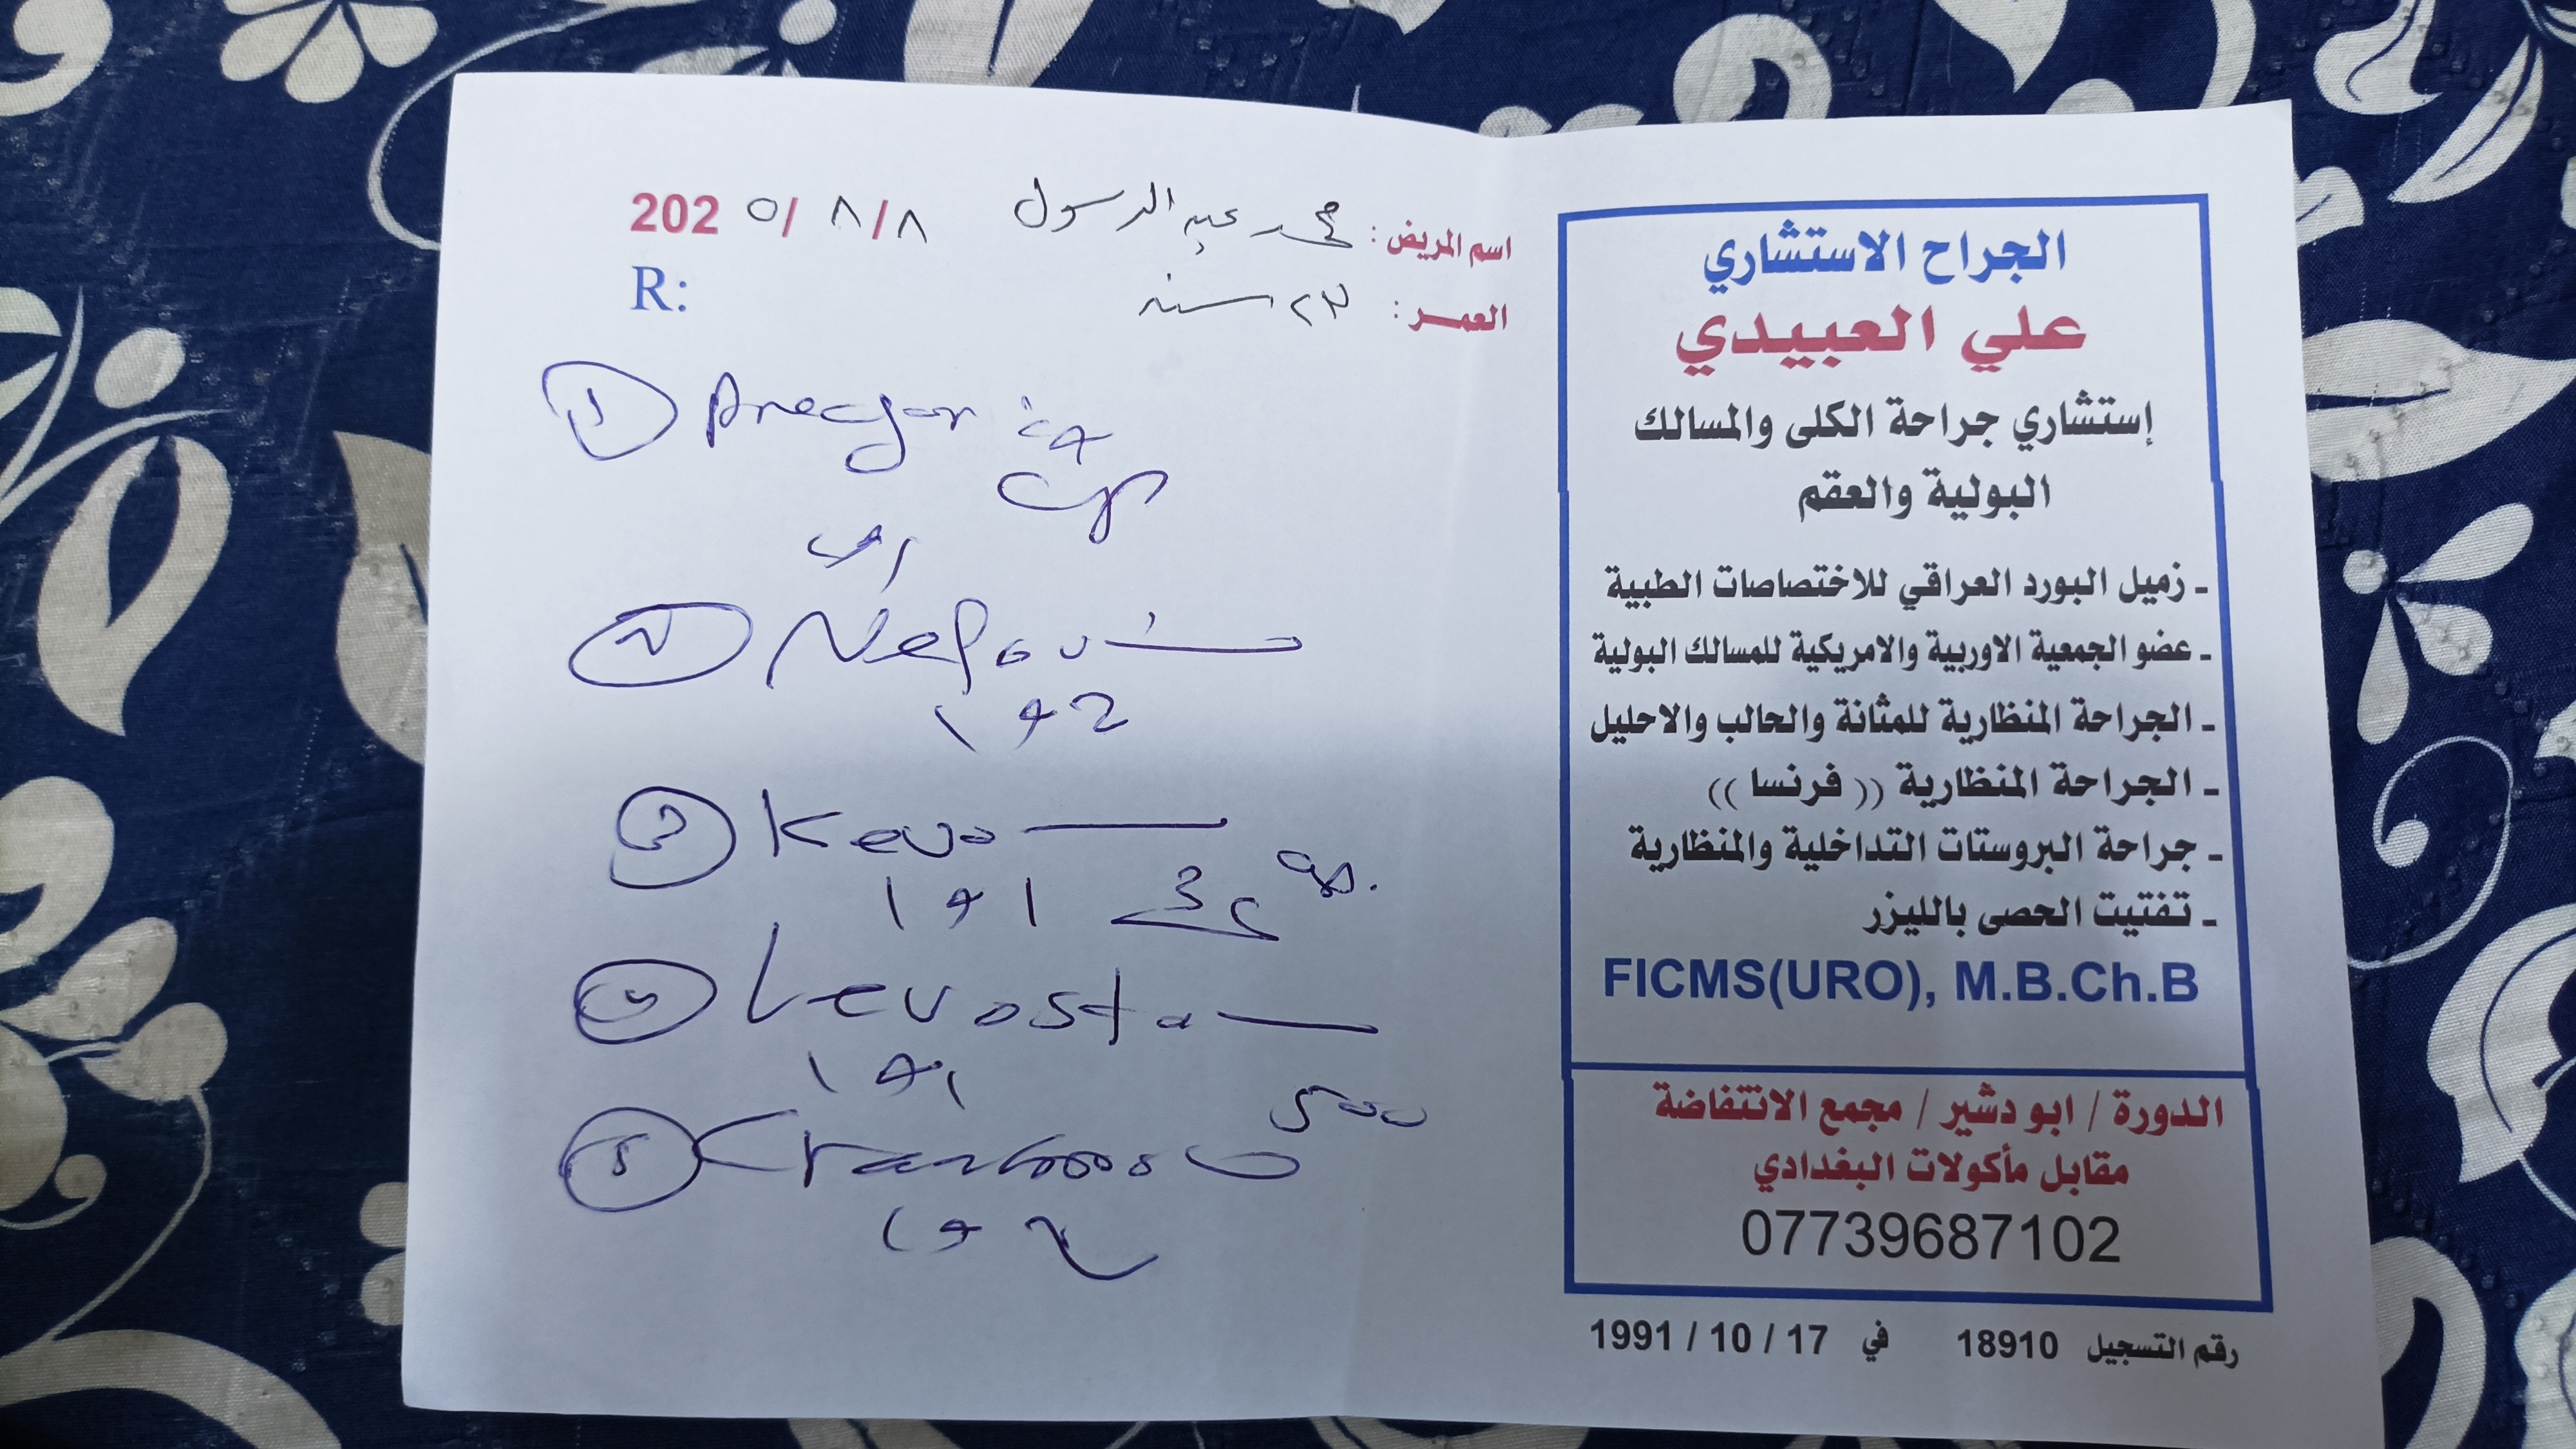 الجراح الاستشاري
علي العبيدي
إستشاري جراحة الكلى والمسالك
البولية والعقم
- زميل البورد العراقي للاختصاصات الطبية
- عضو الجمعية الاوربية والامريكية للمسالك البولية
- الجراحة المنظارية للمثانة والحالب والاحليل
- الجراحة المنظارية (( فرنسا ))
- جراحة البروستات التداخلية والمنظارية
- تفتيت الحصى بالليزر
FICMS(URO), M.B.Ch.B
الدورة / ابو دشير / مجمع الانتفاضة
مقابل مأكولات البغدادي
07739687102
رقم التسجيل 18910 في 17 / 10 / 1991
اسم المريض : محمد عبد الرسول 202٥/ ٨/٨
العمر : ٢٣ سنه
R:
١
٢
1 * 2
٣ Kevo
1 * 1
٤ Levosta
1 * 1
500
5
1 * 2